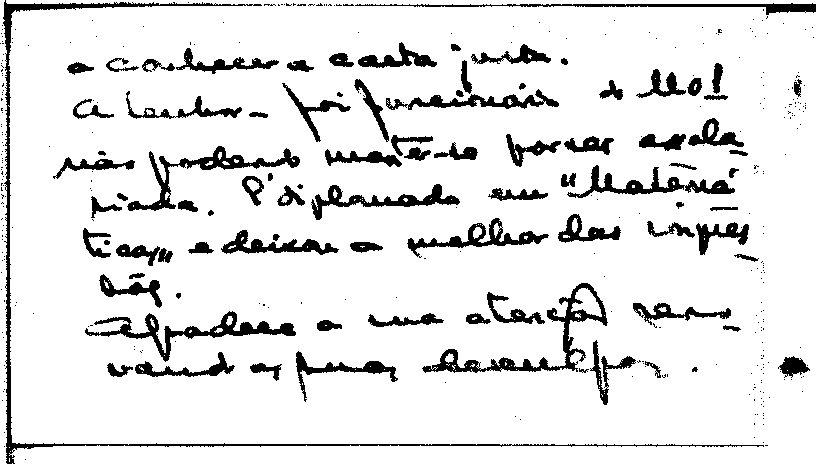 a conhecer a carta junta.
A senhora foi funcionária do
não podendo manter-se por ser assala
riada. É diplomada em "Matemá
ticas" e deixou a melhor das impres
sões.
Agradece a sua atenção reno
vando as suas desculpas.